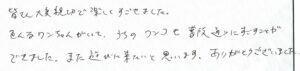 皆さん大変親切で楽しくすごせました。
色んなワンちゃんがいて、うちのワンコも普段通りにすごすことが
できました。また遊びに来たいと思います。ありがとうございました。